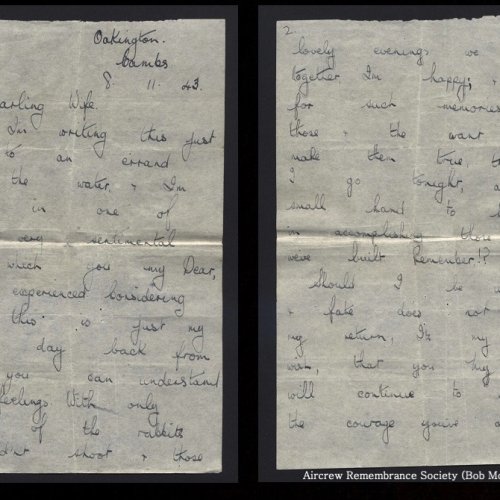 Oakington.
Cambs
8. 11. 43.
arling Wife.
I'm writing this just
to an errand
the water, & I'm
in one of
very sentimental
which you my Dear,
experienced. Considering
this is just my
day back from
you can understand
feelings. With only
of the rabbits
shoot & those
2.
lovely evenings we
together I'm happy;
for such memories
those & the want
make them true, th
I go tonight, a
small hand to
in accomplishing tho
we've built. Remember!?
Should I be u
& fate does not
my return, It's my
wish, that you my
will continue to
the courage you've a
Aircrew Remembrance Society (Bob Mo